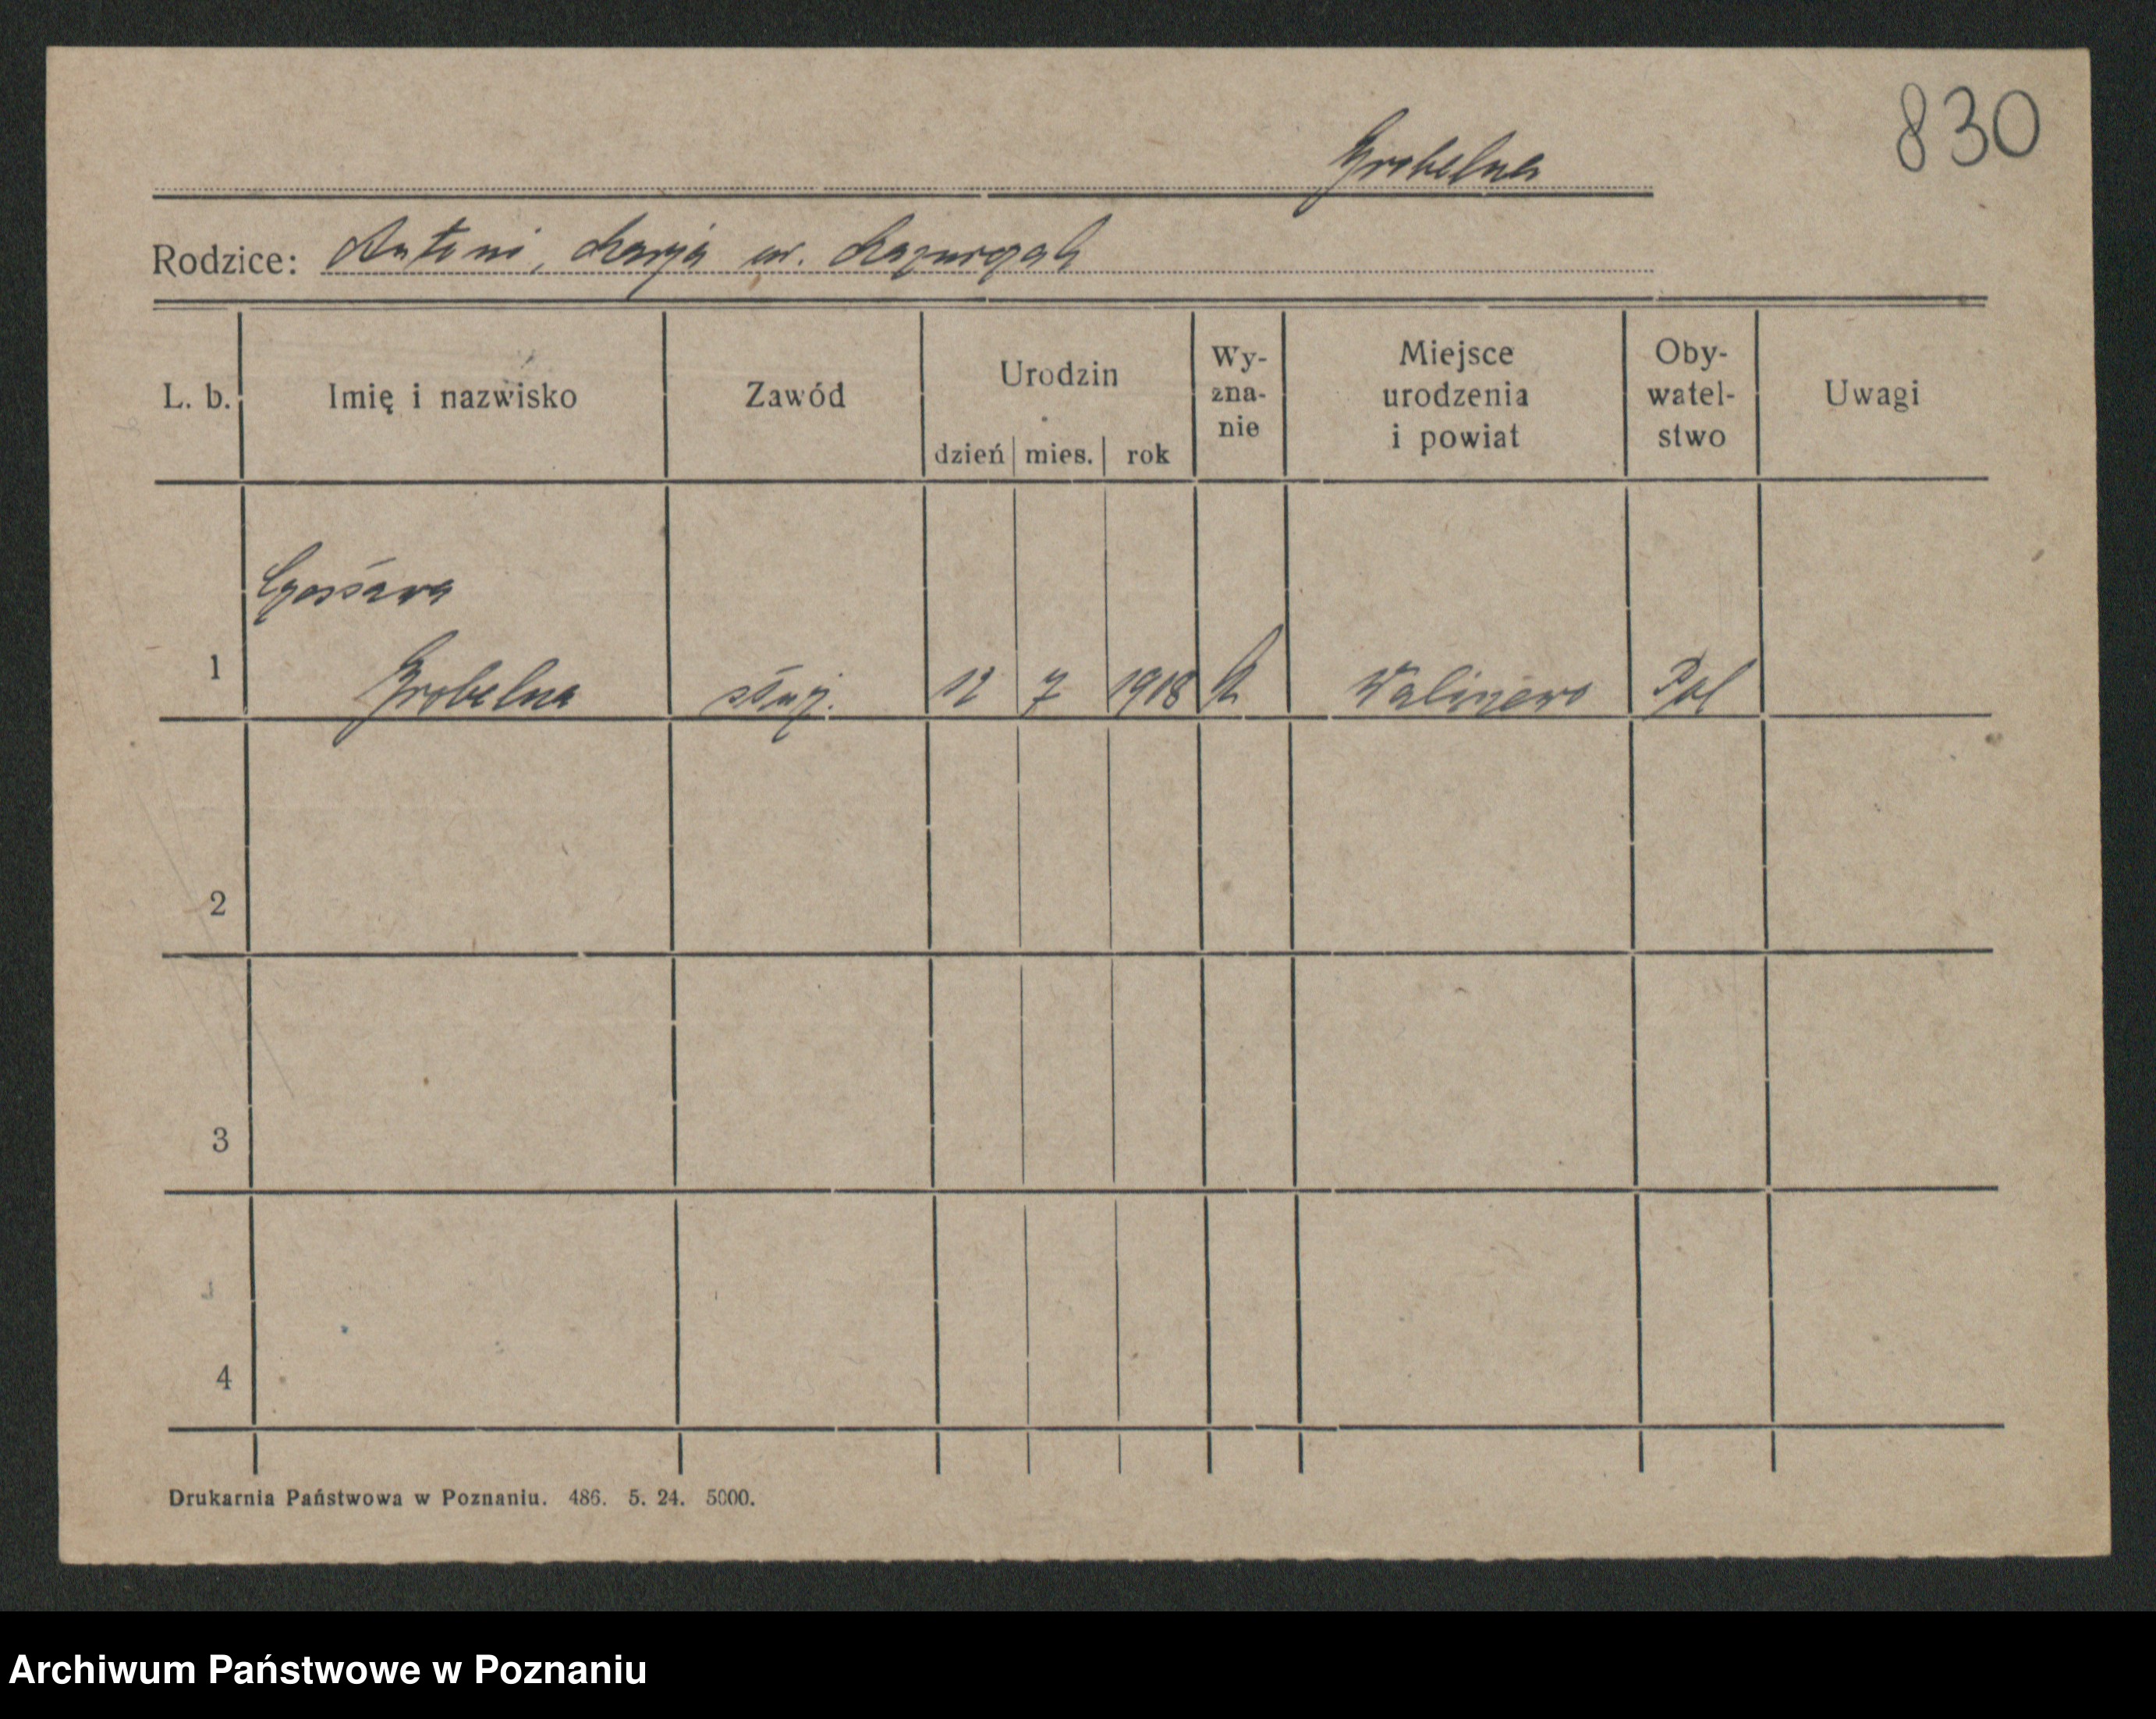 830
Grobelna
Rodzice: Antoni, Marja ur. Mazurczak
L. b. Imię i nazwisko Zawód Urodzin dzień mies. rok Wy-zna-nie Miejsce urodzenia i powiat Oby-watel-stwo Uwagi
Czesława
1 Grobelna służ. 12 7 1918 k Waliszewo Pol
2
3
4
Drukarnia Państwowa w Poznaniu. 486. 5. 24. 5000.
Archiwum Państwowe w Poznaniu